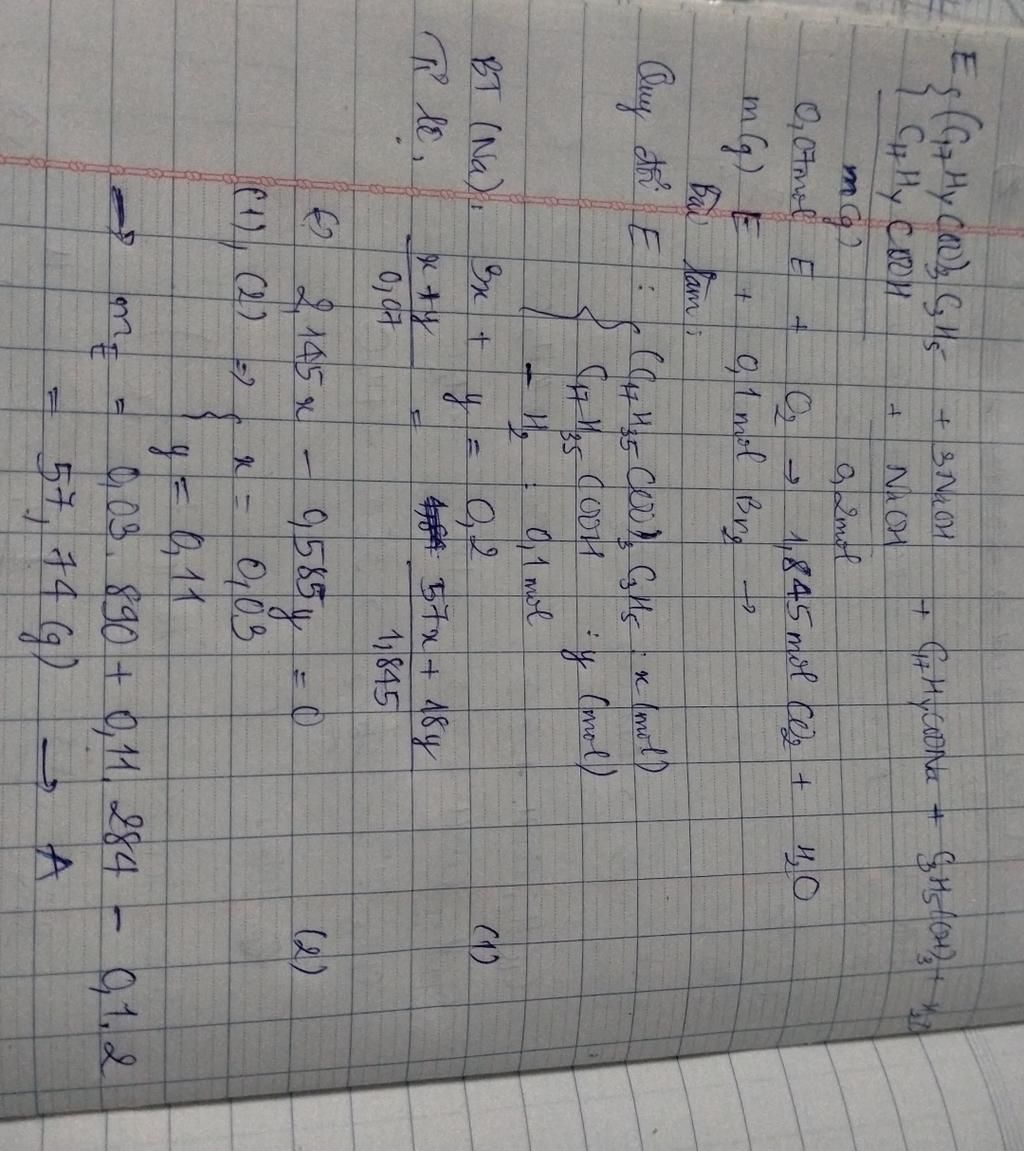 E { (C17HyCOO)3C3H5 + 3NaOH
C17HyCOOH + NaOH → C17HyCOONa + C3H5(OH)3 + H2O
m(g) 0,2mol
0,07mol E + O2 → 1,845mol CO2 + H2O
m(g) E + 0,1mol Br2 →
Bài làm:
Quy đổi E: { (C17H35COO)3C3H5 : x (mol)
C17H35COOH : y (mol)
- H2 : 0,1mol
BT (Na): 3x + y = 0,2 (1)
Tỉ lệ, (x+y)/0,07 = (57x + 18y)/1,845
(=) 2,145x - 0,585y = 0 (2)
(1), (2) => { x = 0,03
y = 0,11
→ mE = 0,03. 890 + 0,11. 284 - 0,1.2
= 57,74(g) → A